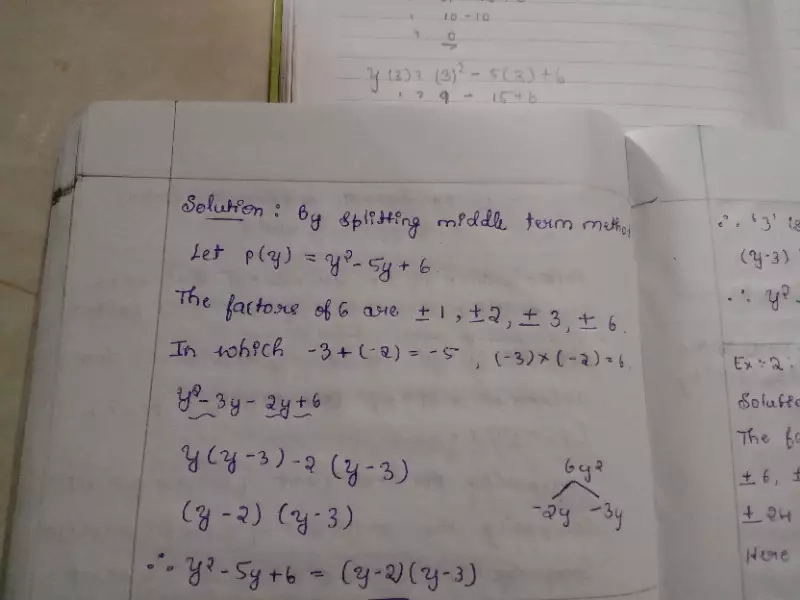 10-10
0
y(3) = (3)² - 5(3) + 6
= 9 - 15+6
Solution : By splitting middle term
Let p(y) = y² - 5y + 6
The factors of 6 are ±1, ±2, ±3, ±6.
In which -3+(-2) = -5, (-3)×(-2)=6.
y² - 3y - 2y + 6
y(y-3) -2 (y-3)
(y-2) (y-3)
6y²
-2y -3y
∴ y² - 5y + 6 = (y-2)(y-3)
∴ '3' is
(y-3)
∴ y² -
Ex :- 2 :
The
±6,
±24
Here